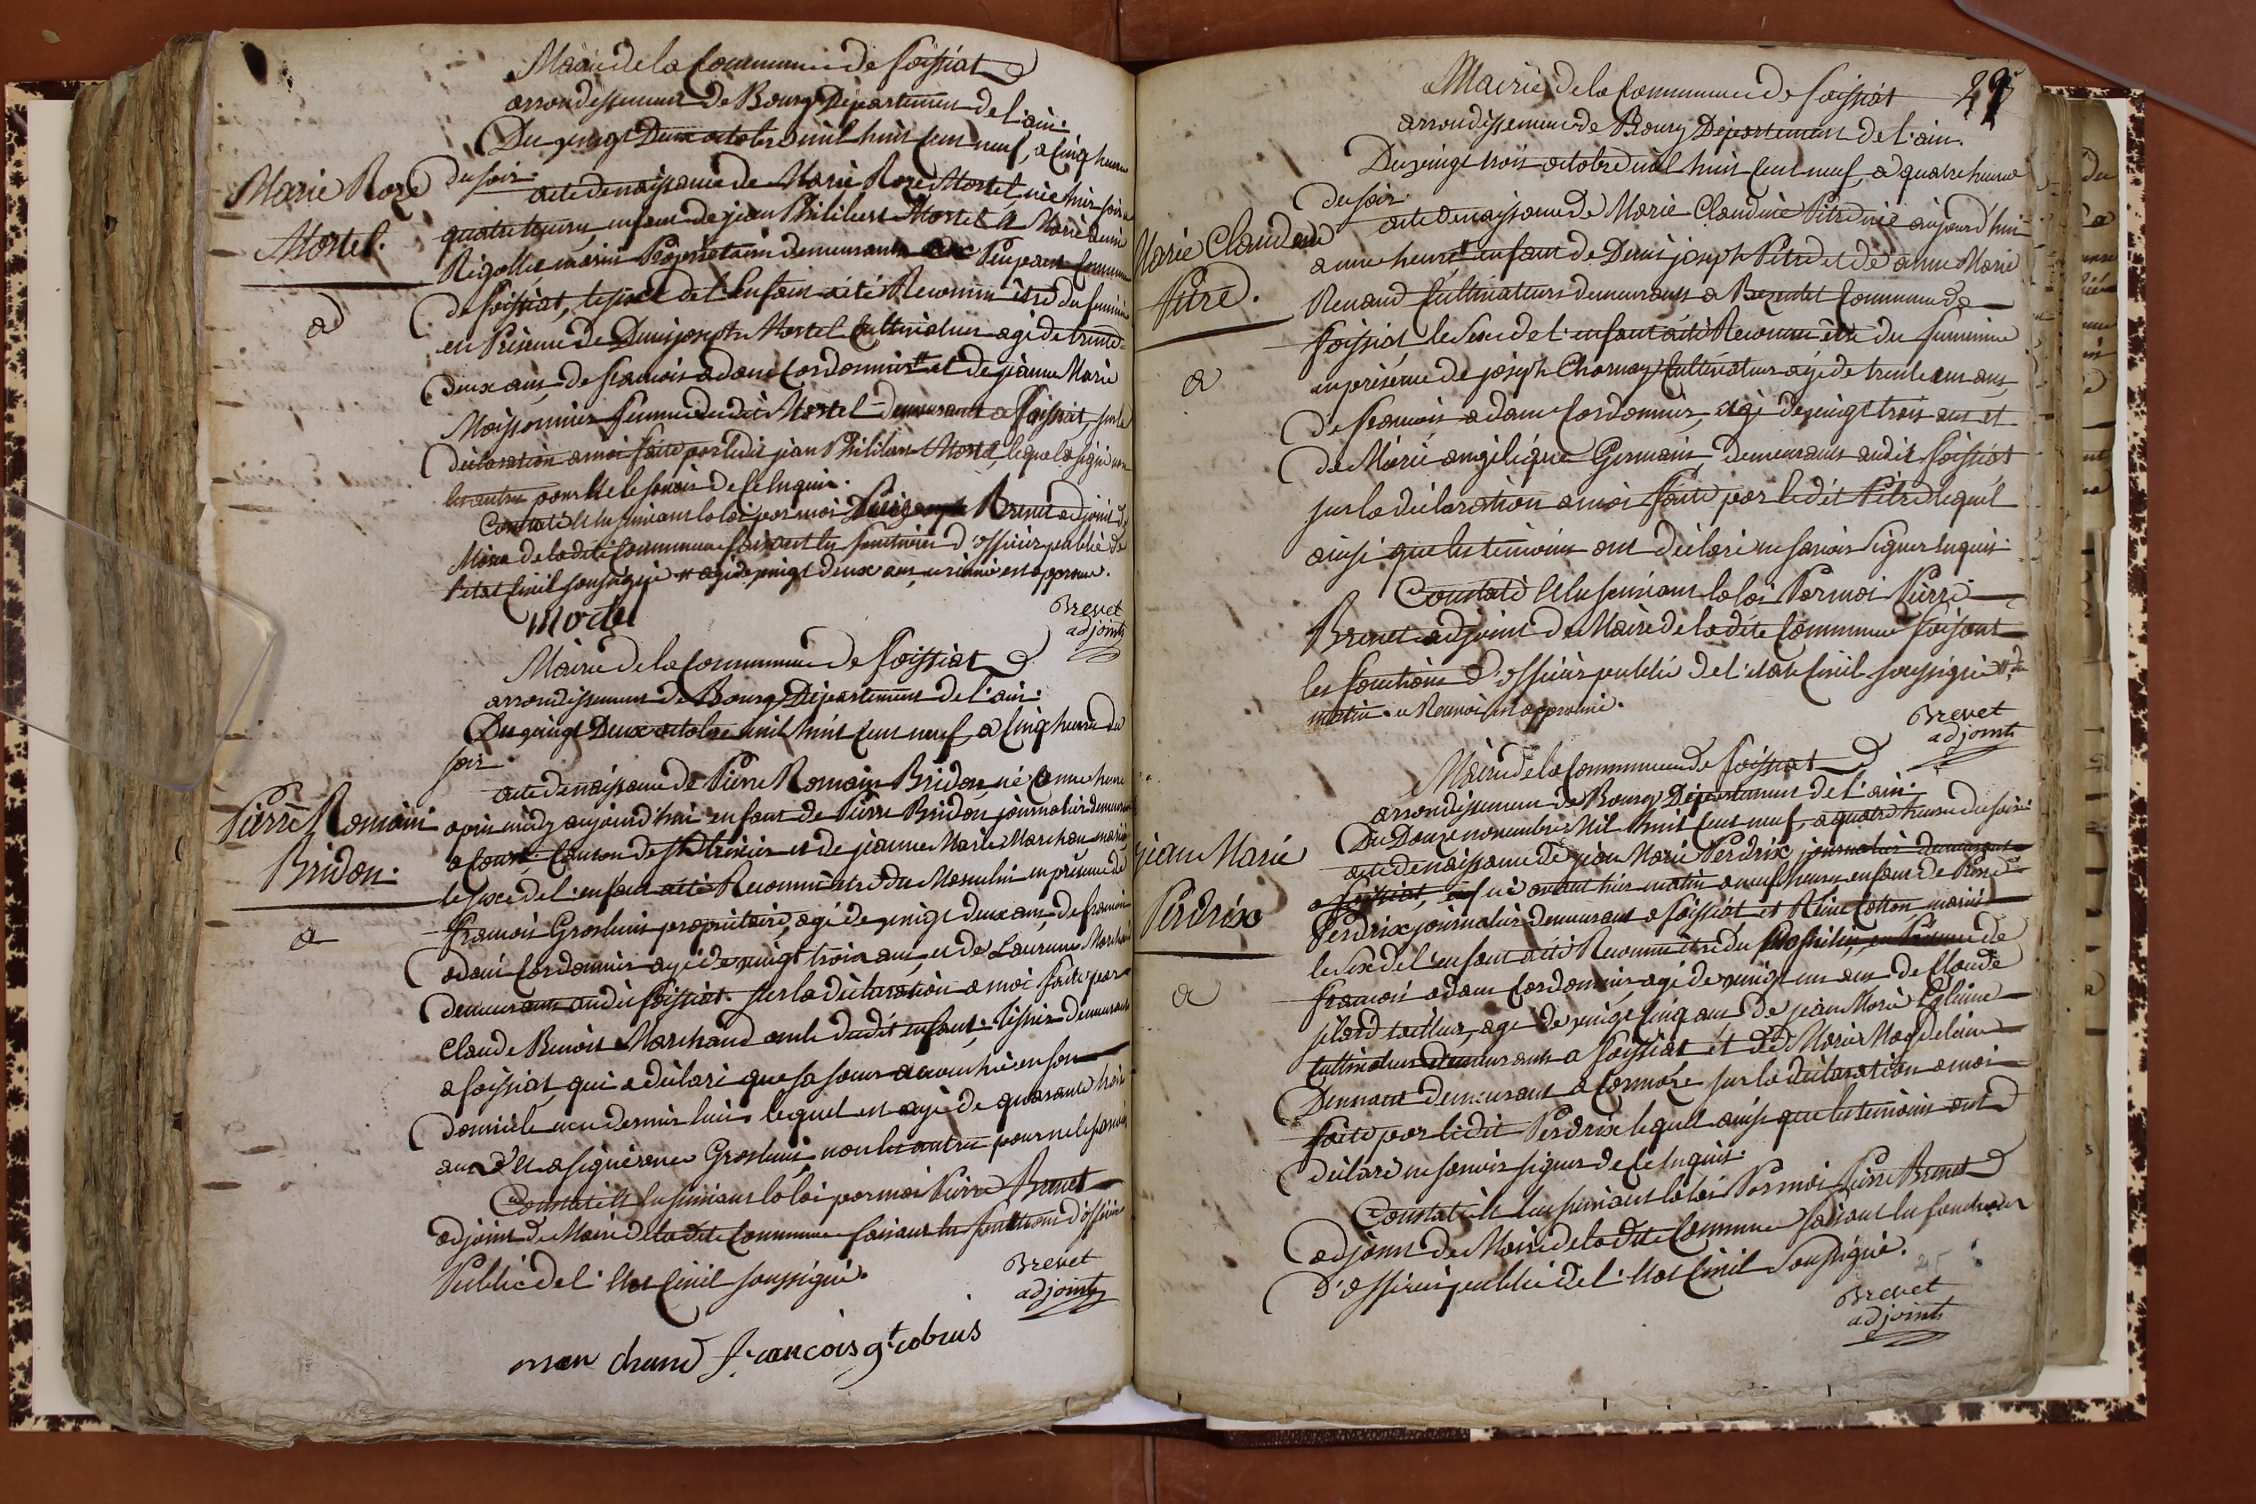 Mairie de la Commune de foissiat
arrondissement de Bourg Département de l'ain.
Du vingt Deux octobre mil huit cent neuf, a cinq heures
du soir.
Marie Roze
Mortel.
acte de naissance de Marie Roze Mortel, née hier soir a
quatre heures, enfant de jean Philibert Mortel et Marie Denise
Rigollet mariés Propriétaires demeurants aux commune
de foissiat, le sexe de l'enfant a été Reconnu être du feminin
en Présence de Denis joseph Mortel Cultivateur agé de trente
deux ans, de francois adam Cordonnier # et de jeanne Marie
Moissonnier femme dudit Mortel demeurants a foissiat, sur la
déclaration a moi faite par ledit jean Philibert Mortel, lequel a signé non
les autres pour ne le savoir de ce Enquis.
Constaté et lu suivant la loi par moi Brevet adjoint du
Maire de la dite Commune faisant les fonctions d'officier public de
l'etat Civil soussigné # agé de vingt deux ans, ce renvoi est approuvé.
mortel
Brevet
adjoint
Mairie de la Commune de foissiat
arrondissement de Bourg Département de l'ain.
Du vingt Deux octobre mil huit cent neuf, a cinq heures du
soir.
Pierre Romain
Bridon.
acte de naissance de Pierre Romain Bridon né a une heure
après midy aujourd'hui enfant de Pierre Bridon journalier demeurant
a Canton de St trivier et de jeanne Marie Marchand mariés
le sexe de l'enfant a été Reconnu être du Masculin en présence de
francois propriétaire, agé de vingt deux ans, de francois
adam Cordonnier agé de vingt trois ans, et de Laurence Marchand
demeurants audit foissiat. sur la déclaration a moi faite par
Claude Benoit Marchand oncle dudit enfant, tissier demeurant
a foissiat, qui a déclaré que sa soeur a accouché en son
domicile lequel est agé de quarante trois
ans et a signé avec non les autres pour ne le savoir
Constaté et lu suivant la loi par moi Pierre Brevet
adjoint du Maire de la dite Commune faisant les fonctions d'officier
Public de l'etat Civil soussigné.
Brevet
adjoint
mar chand francois
Mairie de la Commune de foissiat
arrondissement de Bourg Département de l'ain.
Du vingt trois octobre mil huit cent neuf, a quatre heures
du soir
Marie Claudine
Pitre.
acte de naissance de Marie Claudine Pitre née aujourd'hui
a une heure # enfant de Denis joseph Pitre et de anne Marie
Renaud Cultivateurs demeurants a Bezentet Commune de
foissiat le sexe de l'enfant a été Reconnu être du feminin
en présence de joseph Charnay Cultivateur agé de trente ans,
de francois adam Cordonnier, agé de vingt trois ans et
de Marie angélique Germain demeurants audit foissiat
sur la déclaration a moi faite par ledit Pitre lequel
ainsi que les témoins ont déclaré ne savoir Signer Enquis.
Constaté et lu suivant la loi Par moi Pierre
Brevet adjoint du Maire de la dite Commune faisant
les fonctions d'officier public de l'etat Civil soussigné # du
matin. ce Renvoi est approuvé.
Brevet
adjoint
Mairie de la Commune de foissiat
arrondissement de Bourg Département de l'ain.
Du Douze novembre Mil huit cent neuf, a quatre heures du soir.
jean Marie
Perdrix
acte de naissance de jean Marie Perdrix, journalier demeurant
a foissiat, né avant hier matin a neuf heures, enfant de
Perdrix journalier demeurant a foissiat et Reine mariés
le sexe de l'enfant a été Reconnu être du Masculin, en Présence de
francois adam Cordonnier, agé de vingt un ans de Claude
tailleur, agé de vingt cinq ans, de jean Marie
Cultivateur demeurants a foissiat et de Marie Magdelaine
demeurant a Cormoz sur la déclaration a moi
faite par ledit Perdrix lequel ainsi que les témoins ont
déclaré ne savoir signer de ce Enquis.
Constaté et lu suivant la loi Par moi Pierre Brevet
adjoint du Maire de la dite Commune faisant les fonctions
d'officier public de l'etat Civil Soussigné.
25
Brevet
adjoint